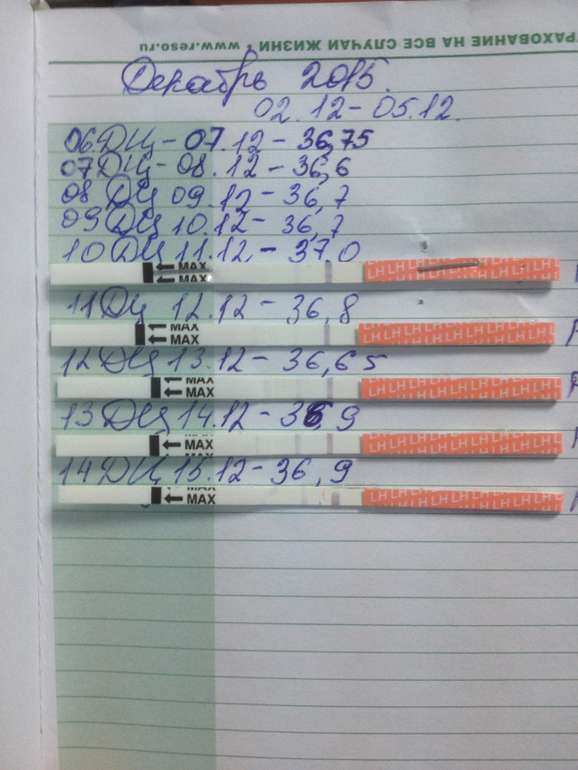 ТРАХОВАНИЕ НА ВСЕ СЛУЧАИ ЖИЗНИ • www.reso.ru
Декабрь 2015.
02.12-05.12.
06.ДЦ-07.12-36,75
07ДЦ-08.12-36,6
08 ДЦ 09.12-36,7
09 ДЦ 10.12-36,7
10 ДЦ 11.12-37,0
MAX
MAX
LH LH LH LH LH LH
11 ДЦ 12.12-36,8
MAX
MAX
LH LH LH LH LH LH
12 ДЦ 13.12-36,65
MAX
MAX
LH LH LH LH LH LH
13 ДЦ 14.12-36 9
MAX
LH LH LH LH LH LH
14 ДЦ 15.12-36,9
MAX
MAX
LH LH LH LH LH LH